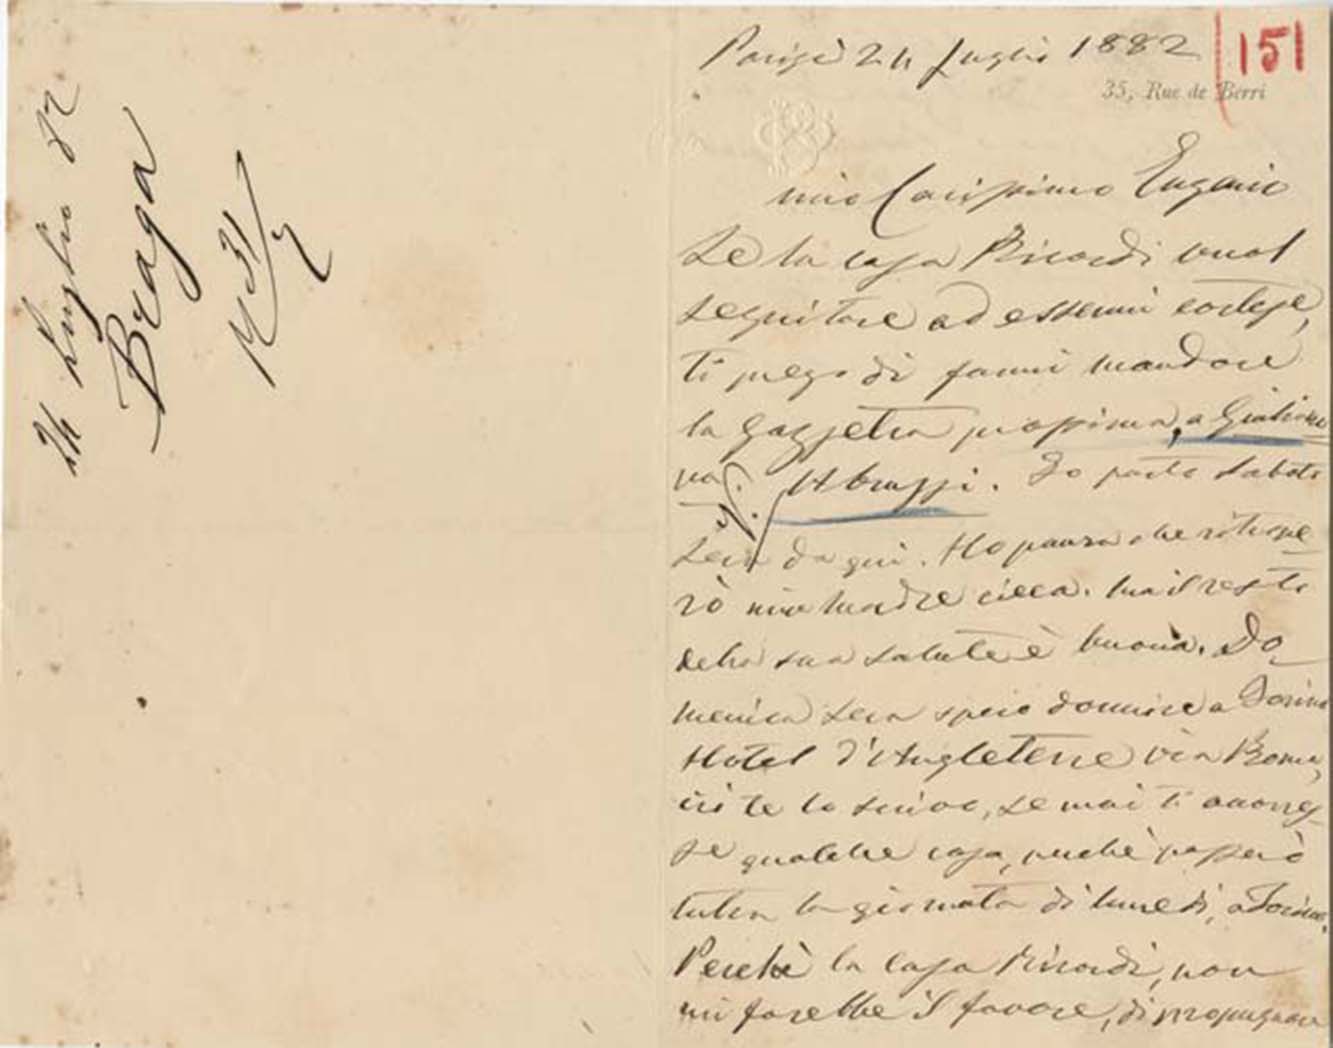 24 Luglio 82
Braga
31/7
Parigi 24 Luglio 1882
151
35, Rue de Berri
mio Carissimo Eugenio
Se la casa Ricordi vuol
seguitare ad essermi cortese,
ti prego di farmi mandare
la gazzetta prossima, a Giulianu
va. Abruzzi. Io parto Sabato
sera da qui. Ho paura che ritrove
rò mia madre cieca. Ma il resto
della sua salute è buona. Do
menica sera spero dormire a Torino
Hotel d'Angleterre via Roma,
io te lo scrivo, se mai ti occorres
se qualche cosa, perchè passerò
tutta la giornata di lunedì, a Torino.
Perchè la casa Ricordi, non
mi farebbe il favore, di propugnare